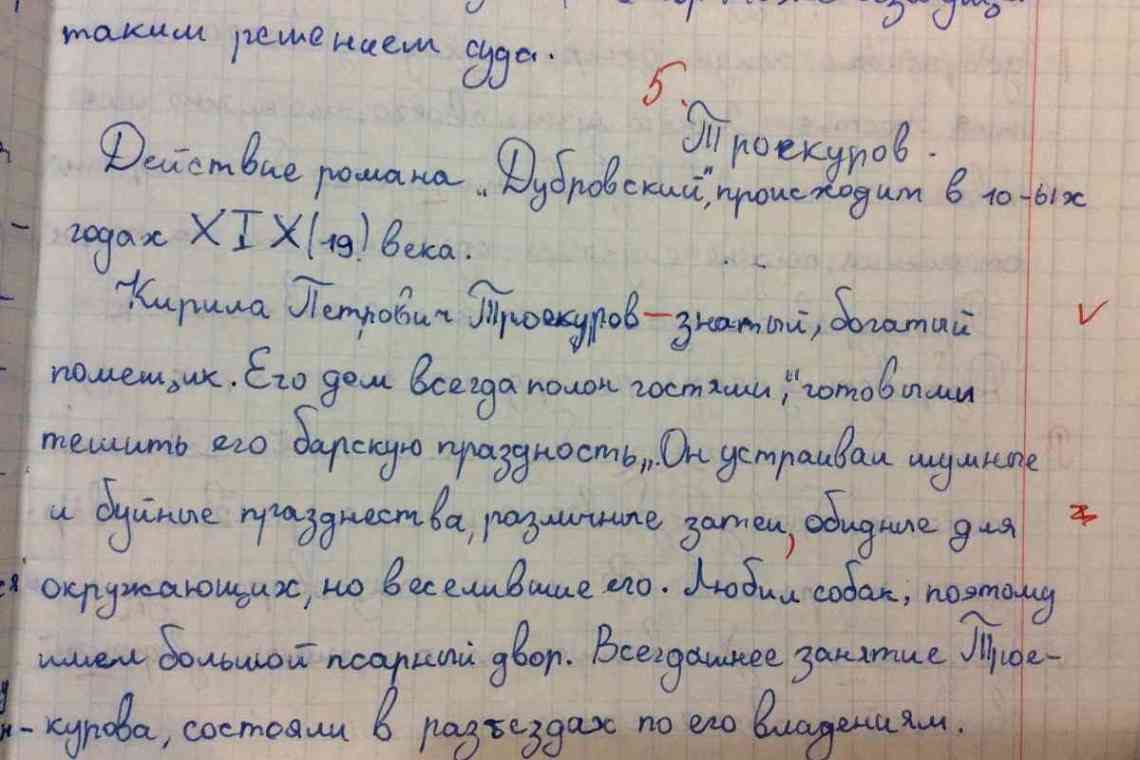 таким решением суда.
5.
Троекуров.
Действие романа „Дубровский", происходит в 10-ых
годах XIX(19) века.
Кирила Петрович Троекуров — знатый, богатый
помещик. Его дом всегда полон гостями, "готовыми
тешить его барскую праздность„. Он устраивал шумные
и буйные празднества, различные затеи, обидные для
окружающих, но веселившие его. Любил собак, поэтому
имел большой псарный двор. Всегдашнее занятие Трое-
курова, состояли в разъездах по его владениям.